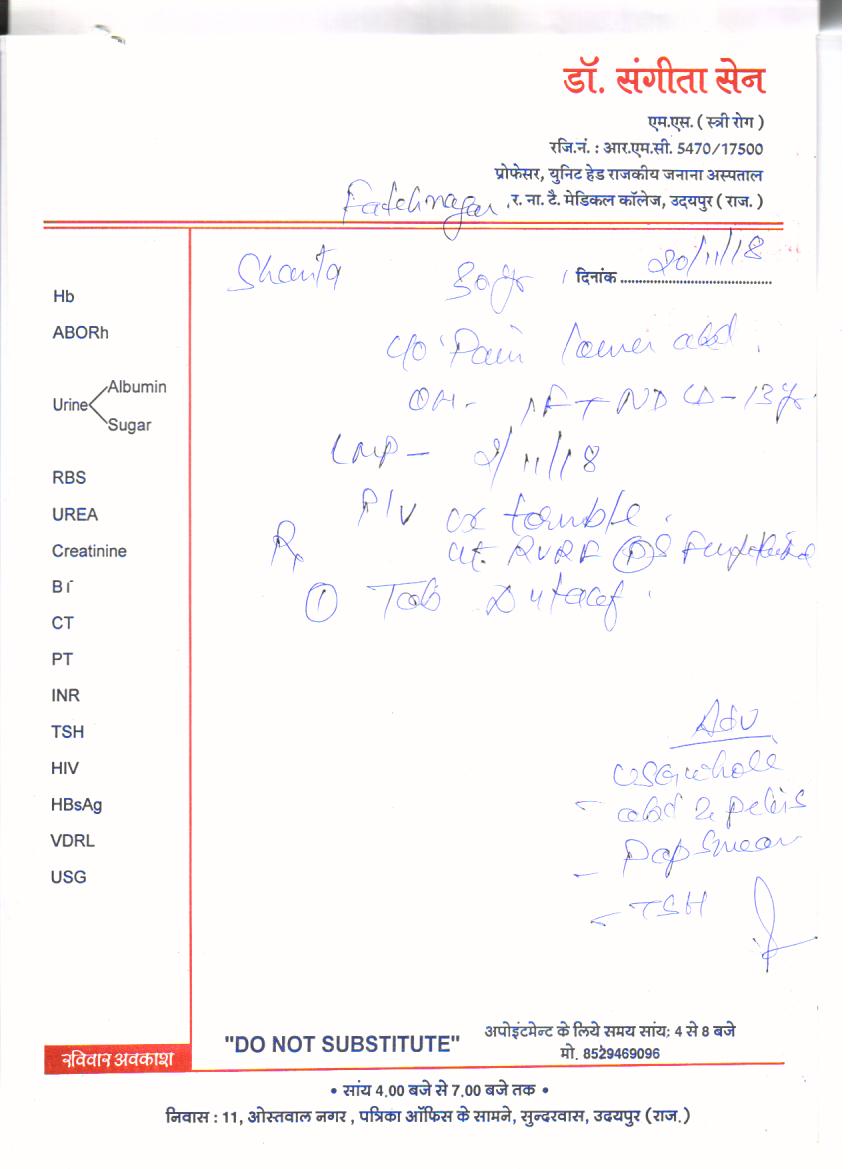 डॉ. संगीता सेन
एम.एस. ( स्त्री रोग )
रजि.नं. : आर.एम.सी. 5470/17500
प्रोफेसर, युनिट हेड राजकीय जनाना अस्पताल
Fatehnagar र. ना. टै. मेडिकल कॉलेज, उदयपुर ( राज. )
Shanta 30yr दिनांक 20/11/18
Hb
c/o Pain lower abd.
ABORh
OH - FTND - 13yr
Urine Albumin
Sugar
LMP - 2/11/18
RBS
P/V cx
UREA
Rx ut. RVRF
Creatinine
① Tab
CT
PT
INR
TSH
HIV
HBsAg
VDRL
USG
Adv
USG whole
- abd & pelvis
- Pap Smear
- TSH
"DO NOT SUBSTITUTE"
अपोइंटमेन्ट के लिये समय सांय: 4 से 8 बजे
मो. 8529469096
रविवार अवकाश
• सांय 4.00 बजे से 7.00 बजे तक •
निवास : 11, ओस्तवाल नगर , पत्रिका ऑफिस के सामने, सुन्दरवास, उदयपुर (राज.)